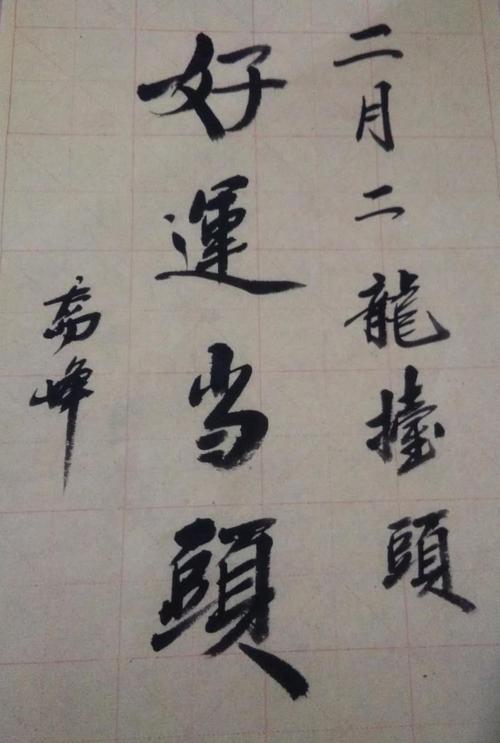 二月二龍擡頭
好運当頭
高峰